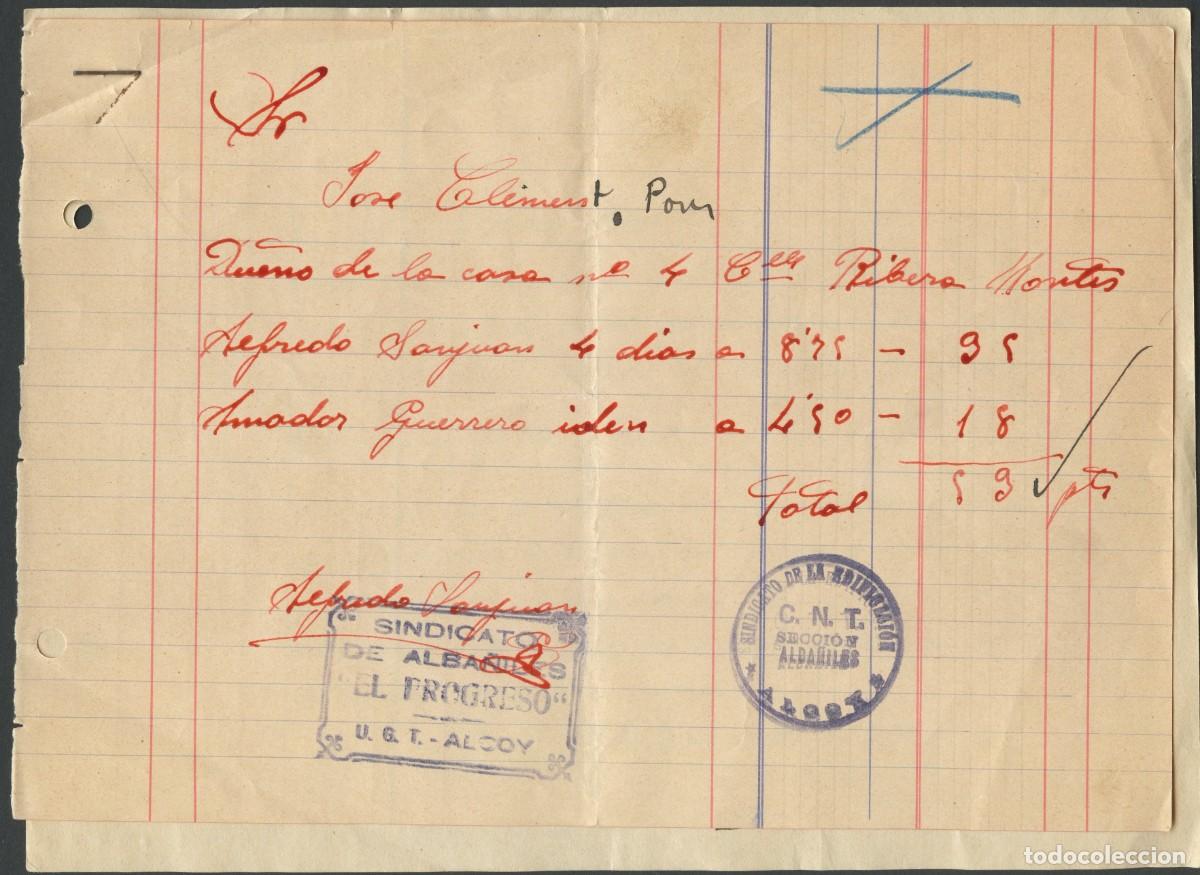 Sr
Jose Clement. Pons
Dueño de la casa nº 4 Clle Ribera Montes
Alfredo Sanjuan 4 dias a 8'75 - 35
Amador Guerrero iden a 4'50 - 18
Total 53 pts
Alfredo Sanjuan
SINDICATO
DE ALBAÑILES
"EL PROGRESO"
U. G. T. - ALCOY
SINDICATO DE LA EDIFICACIÓN
C. N. T.
SECCIÓN
ALBAÑILES
ALCOY
todocoleccion